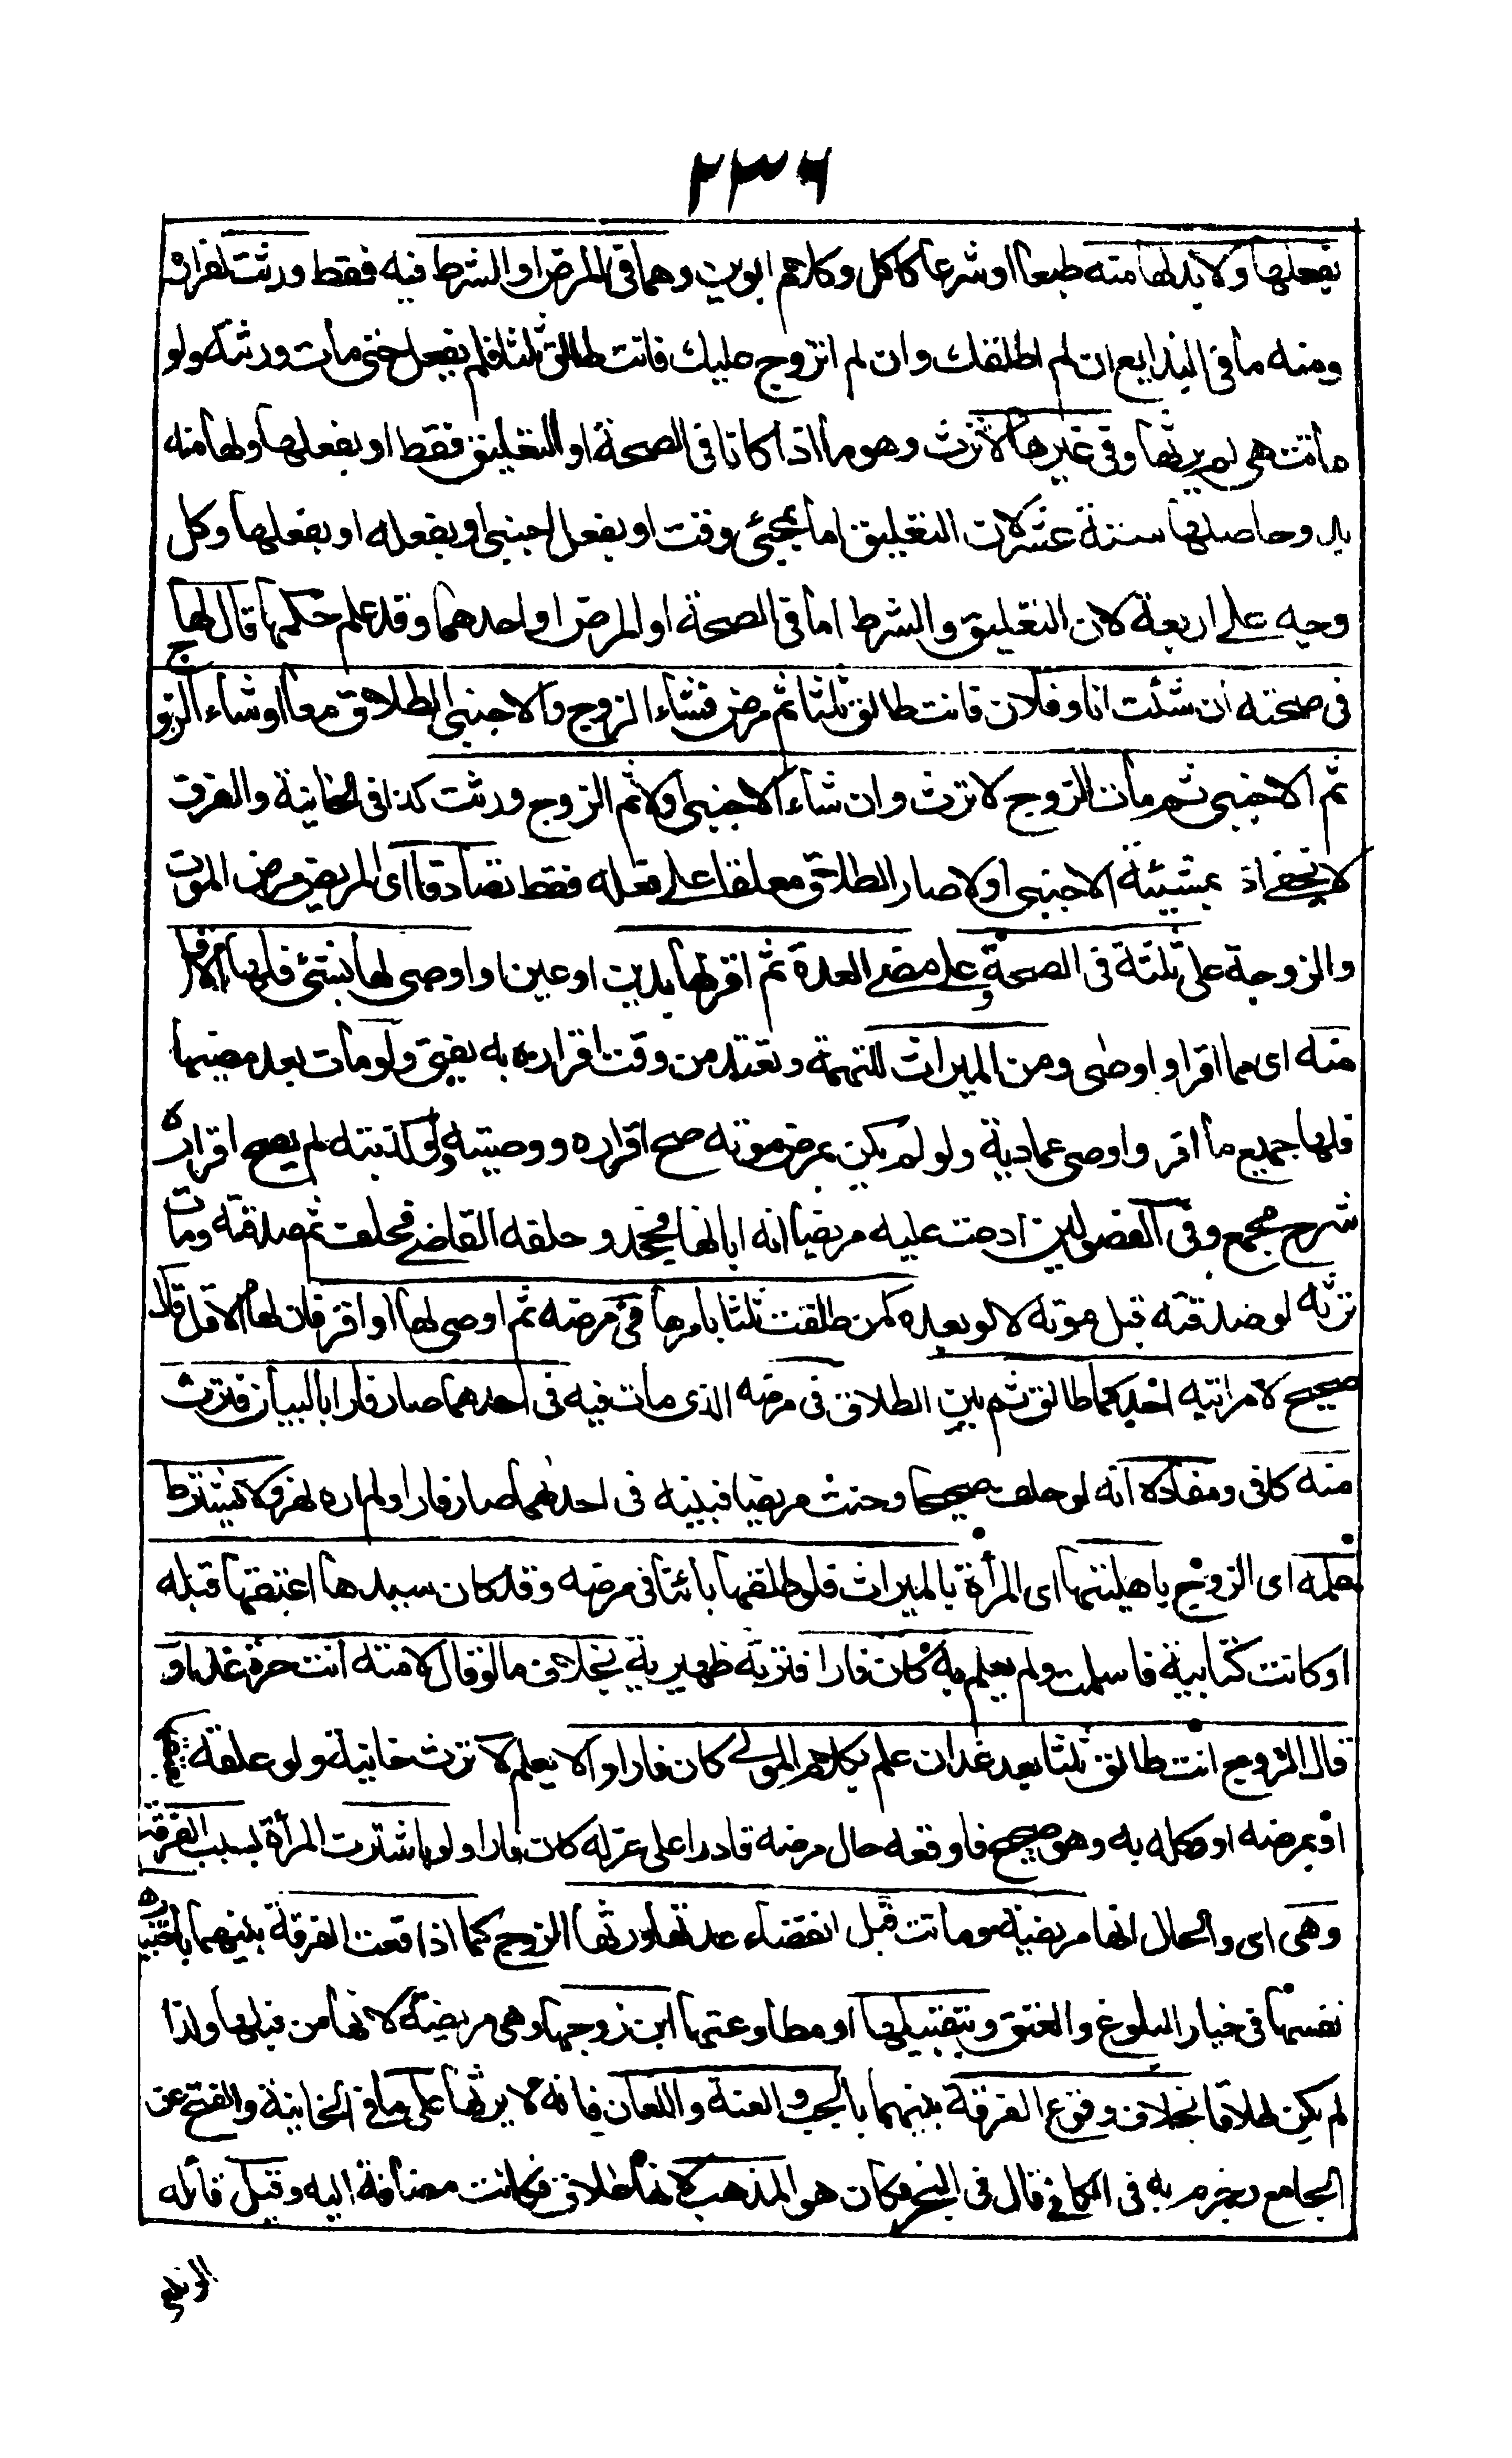 ٢٣٦
بفعلها ولا بد لها منه طبعا او شرعا كاكل وكلام ابوين وهما فى المرض او الشرط فيه فقط ورثت لفراره
ومنه ما فى البدايع ان لم اطلقك وان لم اتزوج عليك فانت طالق ثلثا فلم يفعل حتى مات ورثته ولو
ماتت هى لم يرثها وفى غيرها لا ترث وهو ما اذا كانا فى الصحة او التعليق فقط او بفعلها ولها منه
بد وحاصلها ستة عشر لان التعليق اما بمجئ وقت او بفعل اجنبى او بفعله او بفعلها وكل
وجه على اربعة لان التعليق والشرط اما فى الصحة او المرض او احدهما وقد علم حكمها قال لها
فى صحته ان شئت انا وفلان فانت طالق ثلثا ثم مرض فشاء الزوج والاجنبى الطلاق معا او شاء الزوج
ثم الاجنبى ثم مات الزوج لا ترث وان شاء الاجنبى اولا ثم الزوج ورثت كذا فى الخانية والفرق
لا يخفى اذ بمشيئة الاجنبى اولا صار الطلاق معلقا على فعله فقط تصادقا اى المريض مرض الموت
والزوجة على ثلثة فى الصحة وعلى مضى العدة ثم اقر لها بدين او عين او اوصى لها بشئ فلها الاقل
منه اى مما اقر او اوصى ومن الميراث للتهمة وتعتد من وقت اقراره به يفتى ولو مات بعد مضيها
فلها جميع ما اقر واوصى عمادية ولو لم يكن بمرض موته صح اقراره ووصيته ولو كذبته لم يصح اقراره
شرح مجمع وفى الفصولين ادعت عليه مريضا انه ابانها فجحد وحلفه القاضى فحلف ثم صدقته ومات
ترثه لو صدقته قبل موته لا لو بعده كمن طلقت ثلثا بامرها فى مرضه ثم اوصى لها او اقر فان لها الاقل قال
صحيح لامراتيه احدكما طالق ثم بين الطلاق فى مرضه الذى مات فيه فى احدهما صار فارا بالبيان فترث
منه كافى ومفاده انه لو حلف صحيحا وحنث مريضا فبينه فى احدهما صار فارا ولم اره نهر ولا يشترط
علمه اى الزوج باهليتها اى المرأة بالميراث فلو طلقها بائنا فى مرضه وقد كان سيدها اعتقها قبله
او كانت كتابية فاسلمت ولم يعلم به كان فارا فترثه ظهيرية بخلاف ما لو قال لامته انت حرة غدا و
قال الزوج انت طالق ثلثا بعد غد ان علم بكلام المولى كان فارا والا يعلم لا ترث خانية ولو علقه
او بمرضه او وكله به وهو صحيح فاوقعه حال مرضه قادرا على عزله كان فارا ولو باشرت المرأة بسبب الفرقة
وهى اى والحال انها مريضة وماتت قبل انقضاء عدتها ورثها الزوج كما اذا وقعت الفرقة بينهما باختيارها
نفسها فى خيار البلوغ والعتق وبتقبيلها او مطاوعتها ابن زوجها وهى مريضة لانها من قبلها ولذا
لم يكن طلاقا بخلاف وقوع الفرقة بينهما بالجب والعنة واللعان فانه لا يرثها على ما فى الخانية والفتح عن
الجامع وجزم به فى الكافى قال فى البحر فكان هو المذهب لانها طلاق فكانت مضافة اليه وقيل قائله
الزيلعى